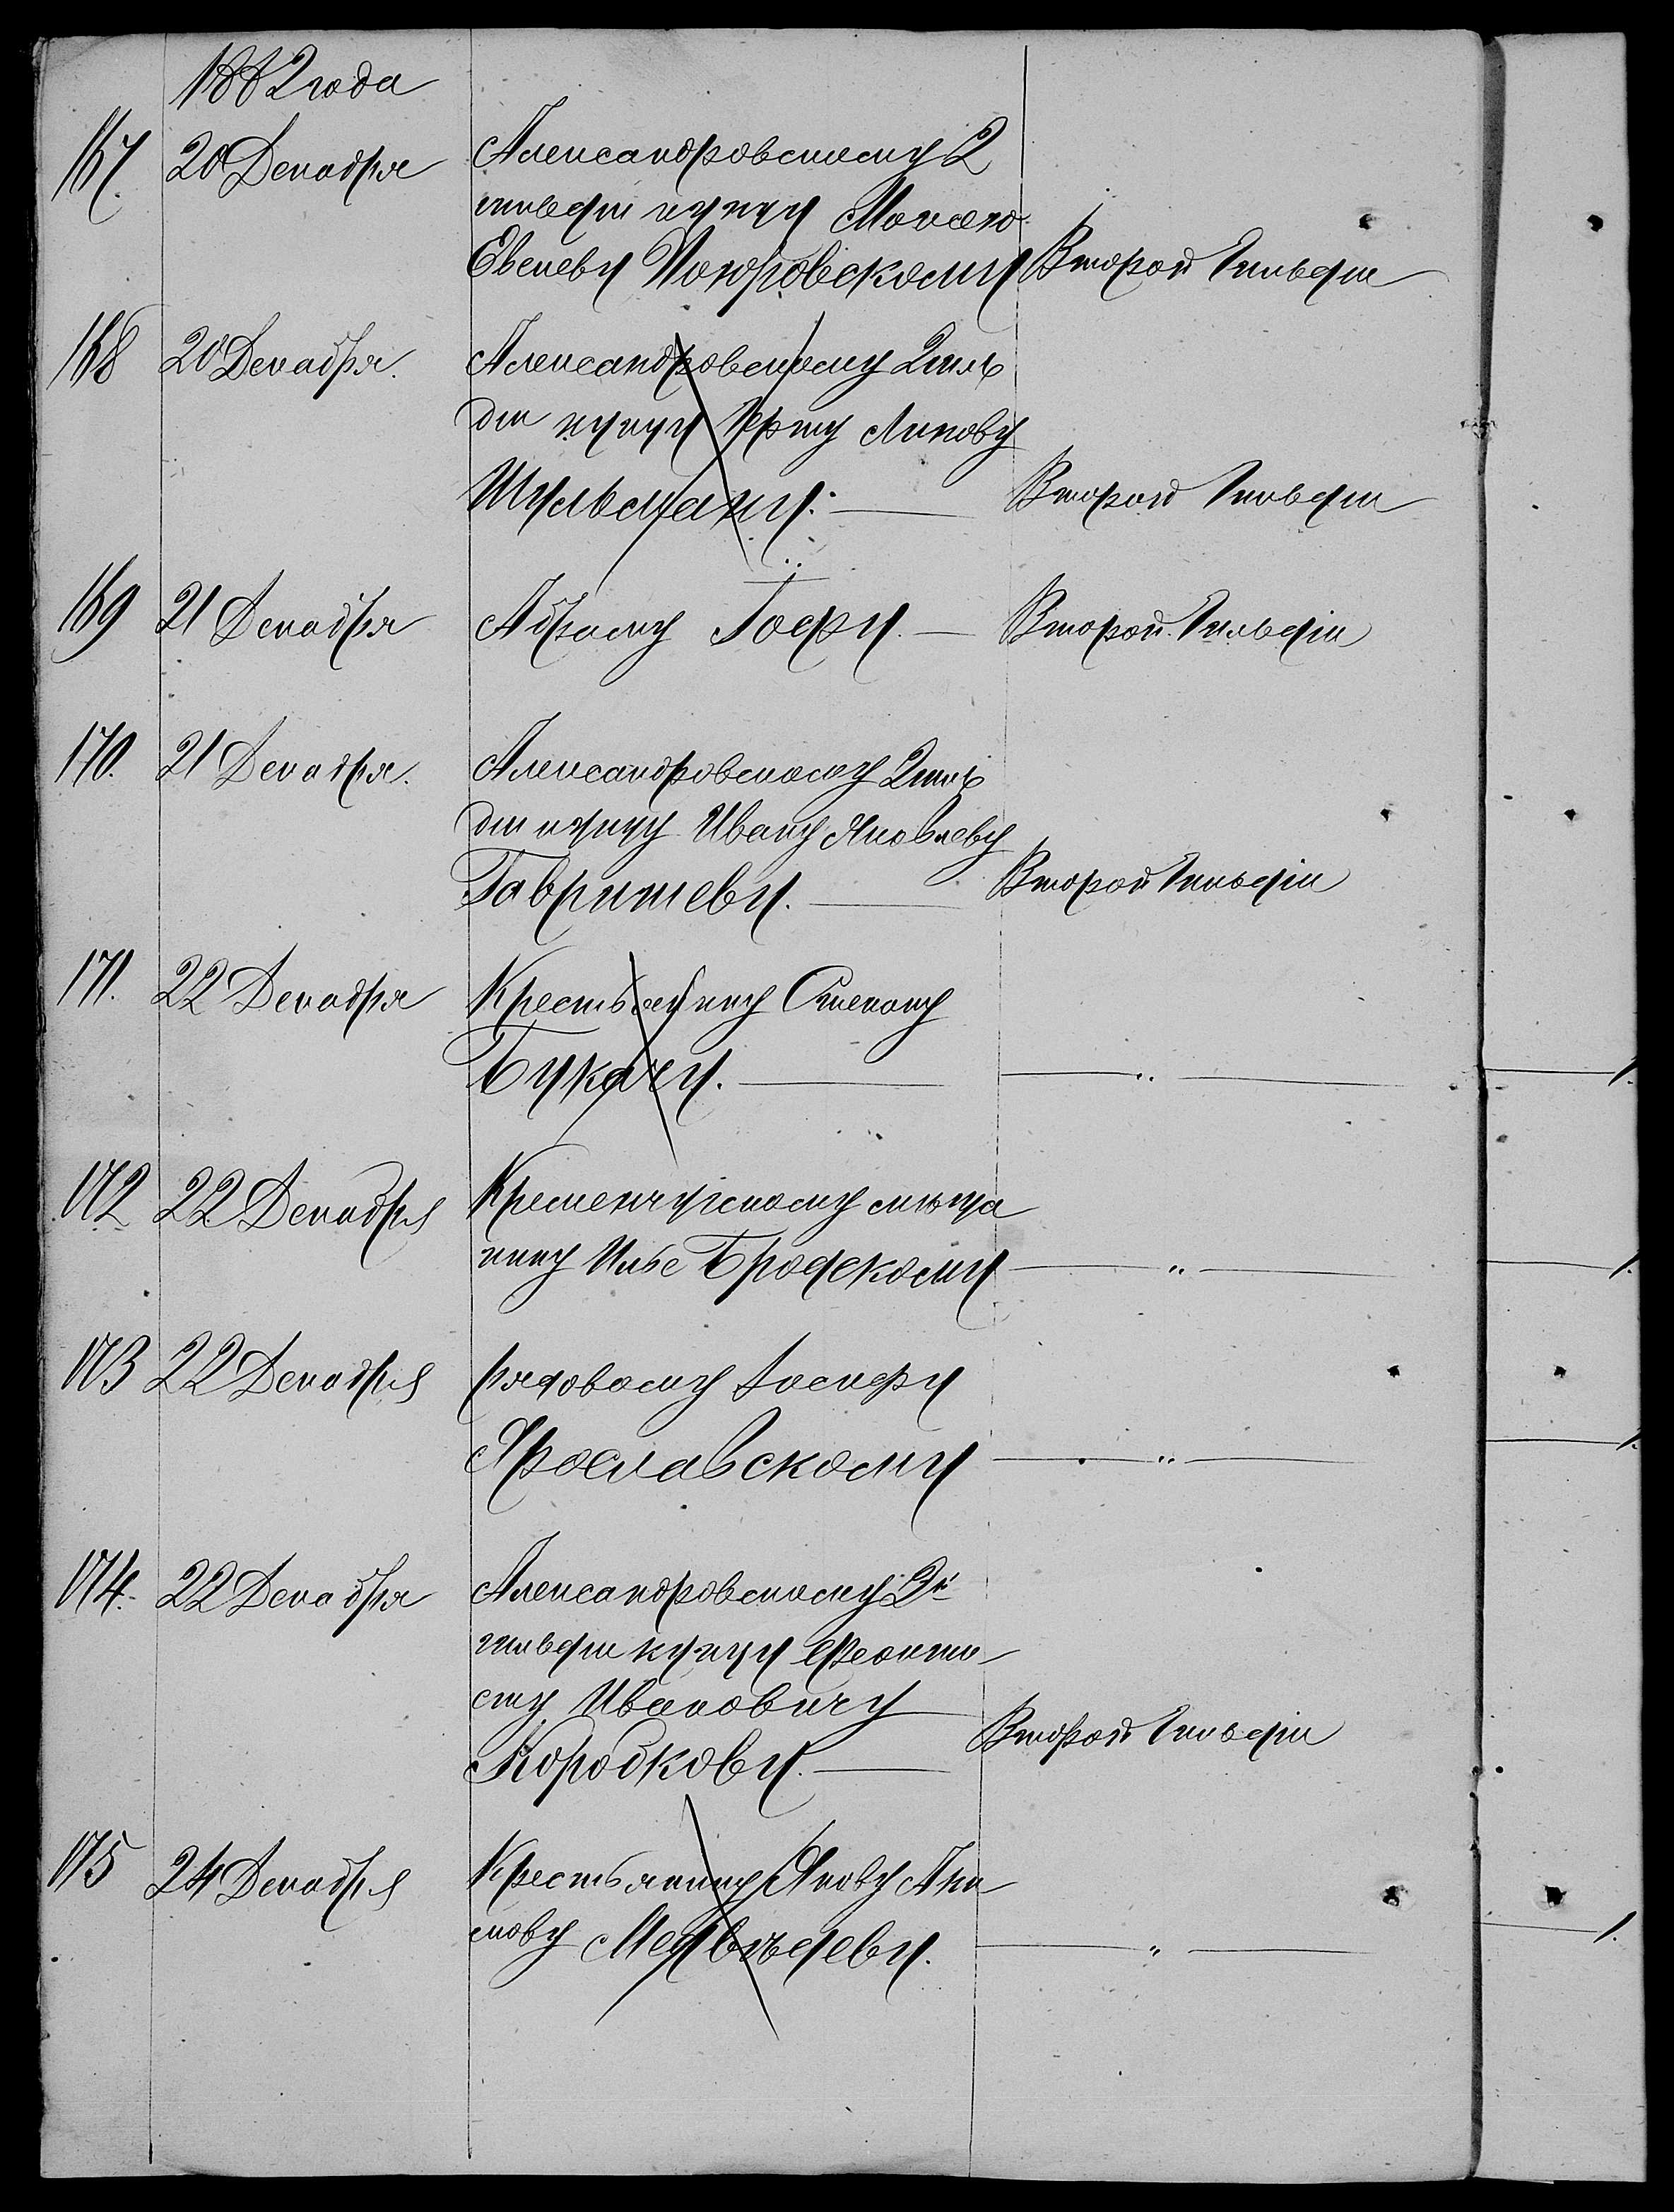 1882 года
167. 20 Декабря Александровскому 2
гильдіи купцу Мопсею
Евелеву Покровскому Второй Гильдіи
168 20 Декабря. Александровскому 2 гиль
діи купцу Липову
Шульману. — Второй Гильдіи
169 21 Декабря Абраму Гофу. — Второй Гильдіи
170. 21 Декабря. Александровскому 2 гиль
діи купцу Ивану Яковлеву
Гавришеву. — Второй Гильдіи
171. 22 Декабря Крестьянину Степану
Букачу. — „ — 1.
172 22 Декабря Кременчугскому мѣща
нину Илье Бродскому — „ — 1.
173 22 Декабря рядовому Іосифу
Ярославскому — „ — 1.
174. 22 Декабря Александровскому 2й
гильдіи купцу Феокти
сту Ивановичу
Коробкову. — Второй Гильдіи
175 24 Декабря Крестьянину Якову Аки
мову Медвѣдеву. — „ — 1.